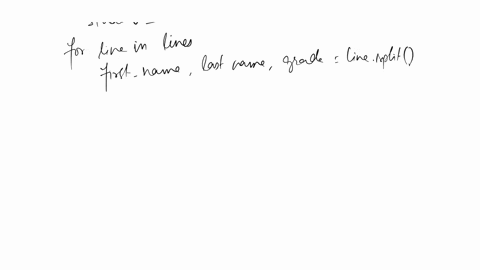 for line in lines
first_name, last name, grade = line.split()